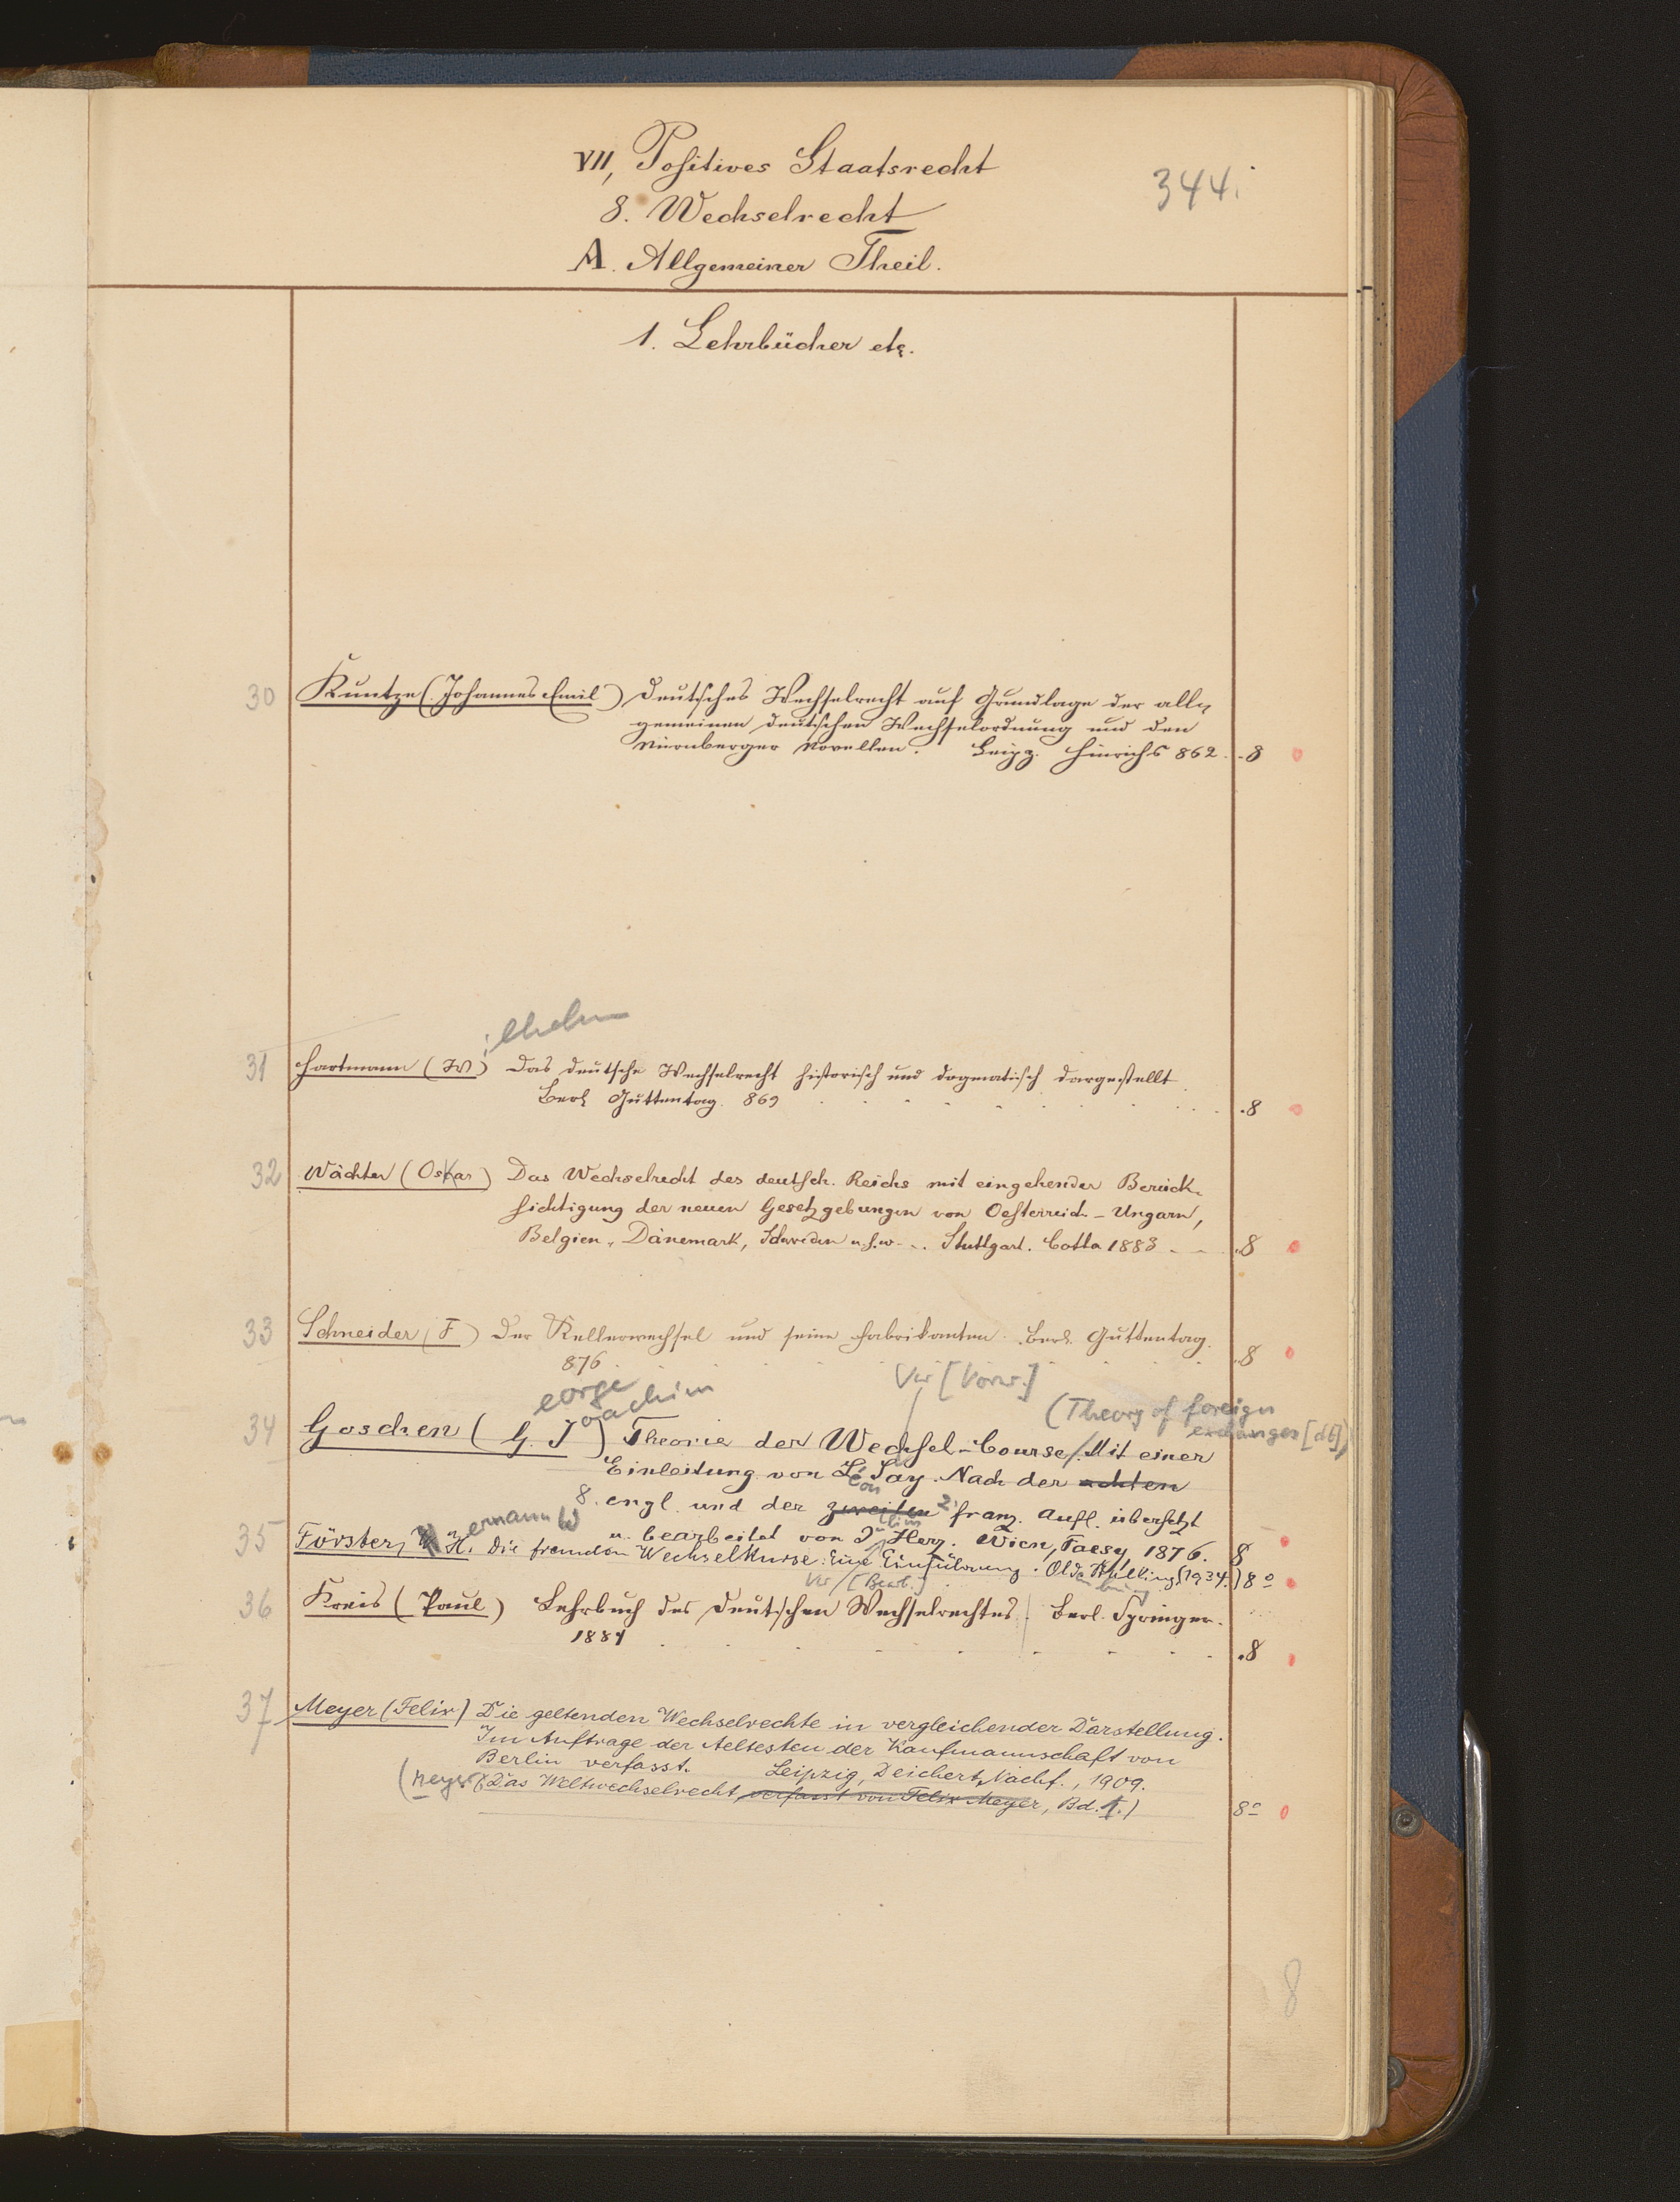 VII, Positives Staatsrecht
344.
8. Wechselrecht
A. Allgemeiner Theil.
1. Lehrbücher etc.
30 Kuntze (Johannes Emil) Deutsches Wechselrecht auf Grundlage der all-
gemeinen deutschen Wechselordnung und den
Nürnberger Novellen. Leipz. Hinrichs 862. 8
ilhelm
31 Hartmann (W) Das deutsche Wechselrecht historisch und dogmatisch dargestellt
Berl. Guttentag. 869 8
32 Wächter (Oskar) Das Wechselrecht des deutsch. Reichs mit eingehender Berück-
sichtigung der neuen Gesetzgebungen von Oesterreich-Ungarn,
Belgien, Dänemark, Schweden u.s.w. Stuttgart. Cotta 1883 8
33 Schneider (F) Der Kellerwechsel und seine Fabrikanten. Berl. Guttentag.
876. 8
eorge oachim Vw [Vorw.]
(Theory of foreign
exchanges [dt])
34 Goschen (G. J) Theorie der Wechsel-Course. Mit einer
Einleitung von Léon Say. Nach der achten
8. engl. und der zweiten 2. franz. Aufl. übersetzt
u. bearbeitet von Herz. Wien, Faesy 1876. 8
ermann W
35 Förster, H. Die fremden Wechselkurse: Eine Einführung. Oldenburg (1934.) 8º
Vw [Bearb.]
36 Kreis (Paul) Lehrbuch des deutschen Wechselrechtes. Berl. Springer.
1884 8
37 Meyer (Felix) Die geltenden Wechselrechte in vergleichender Darstellung.
Im Auftrage der Aeltesten der Kaufmannschaft von
Berlin verfasst. Leipzig, Deichert Nachf., 1909.
(Meyer: Das Weltwechselrecht, verfasst von Felix Meyer, Bd. 1.) 8º
8